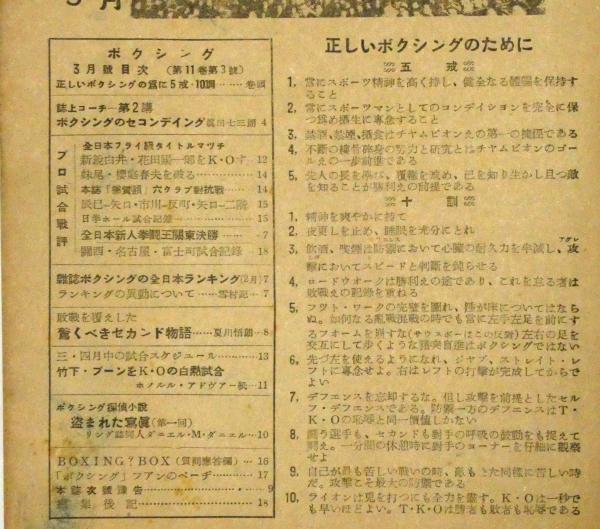 3月
ボクシング
3月號目次 (第11巻第3號)
正しいボクシングの爲に5戒・10訓……巻頭
誌上コーチー第2講
ボクシングのセコンデイング 眞田七三朗 4
プロ試合戰評
全日本フライ級タイトルマツチ
新鋭白井・花田陽一郎をK・Oす 12
妹尾・櫻庭春夫を破る…………14
本誌「拳賞額」穴クラブ對抗戰……14
辰巳ー矢口・市川ー反町・矢口ー二階 15
日拳ホール試合記錄…………15
全日本新人拳鬪王關東決勝……7
關西・名古屋・富士町試合記錄…18
雜誌ボクシングの全日本ランキング(2月) 7
ランキングの異動について……雪村記…7
敗戰を覆えした
驚くべきセカンド物語……夏川悟朗…8
三・四月中の試合スケジュール………13
竹下・ブーンをK・Oの白熱試合
ホノルル・アドヴアー紙…11
ボクシング探偵小說
盜まれた寫眞 (第一回)
リング誌同人ダニエル・M・ダニエル…10
BOXING?BOX (質問應答欄)…16
「ボクシング」フアンのページ……17
本誌次號豫告………9
編集後記………18
正しいボクシングのために
五戒
1. 常にスポーツ精神を高く持し、健全なる體驅を保持す
ること
2. 常にスポーツマンとしてのコンデイションを完全に保
つ爲め攝生に專念すること
3. 禁酒、禁煙、攝食はチヤムピオンえの第一の捷徑である
4. 不斷の粒骨砕身の努力と研究とはチヤムピオンのゴー
ルえの一步前進である
5. 先人の長を學び、覆轍を戒め、己を知り生かし且つ敵
を知ることが勝利えの前提である
十訓
1. 精神を爽やかに持て
2. 夜更しを止め、睡眠を充分にとれ
3. 飮酒、喫煙は防禦において心臓の耐久力を半減し、攻
擊においてスピードと判斷を鈍らせる
4. ロードウオークは勝利えの途であり、これを怠る者は
敗戰えの記錄を重ねる
5. フツト・ワークの完璧を圖れ、踵が床についてはなら
ぬ。如何なる亂戰混戰の時でも常に左手左足を前にす
るフオームを崩すな(サウスポーはこの反對)左右の足を
交互にして步くような猪突盲進はボクシングではない
6. 先づ左を使えるようになれ、ジヤブ、ストレイト・レ
フトに專念せよ。右はレフトの打擊が完成してからで
よい
7. デフエンスを忘却するな。但し攻擊を前提としたセル
フ・デフエンスである。防禦一方のデフエンスはT・
K・Oの恥辱と同一價値しかない
8. 鬪う選手も、セカンドも對手の呼吸の鼓動をも捉えて
鬪え。一分間の休憩時に對手のコーナーを仔細に觀察
せよ
9. 自己が最も苦しい戰いの時、敵もまた同樣に苦しい時
だ。攻擊こそ最大の防禦である
10. ライオンは兎を打つにも全力を盡す。K・Oは一秒で
も早いほどよい。T・K・Oは勝者も敗者も恥辱である